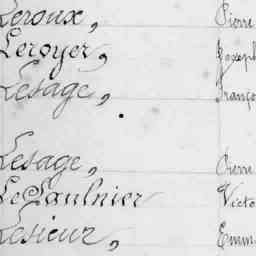 Leroux, Pierre
Leroyer, Joseph
Lesage, Franço
Lesage, Pierre
LePaulnier Victo
Lesieur, Emm